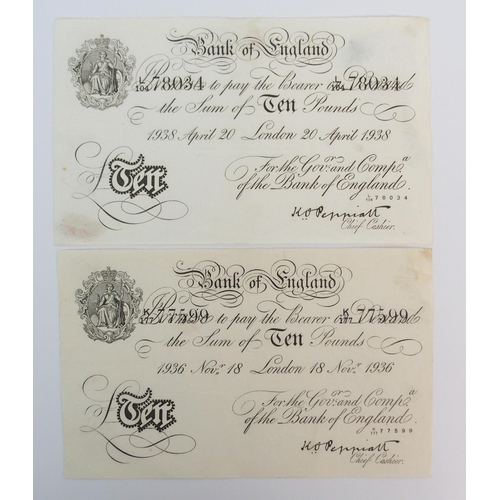 Bank of England
L/104 78034 to pay the Bearer L/104 78034
the Sum of Ten Pounds
1938 April 20 London 20 April 1938
For the Govr. and Compa.
of the Bank of England.
£Ten
L/104 78034
K.O. Peppiatt
Chief Cashier.
Bank of England
K/177 77599 to pay the Bearer K/177 77599
the Sum of Ten Pounds
1936 Novr. 18 London 18 Novr. 1936
For the Govr. and Compa.
of the Bank of England.
£Ten
K/177 77599
K.O. Peppiatt
Chief Cashier.